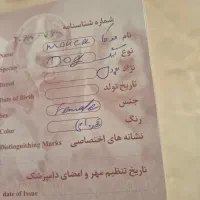 شماره شناسنامه
Name MAHER نام
Species DOG نوع
Breed نژاد
Date of Birth تاریخ تولد
Sex Female جنس
Color رنگ
Distinguishing Marks نشانه های اختصاصی
تاریخ تنظیم مهر و امضای دامپزشک
date of Issue